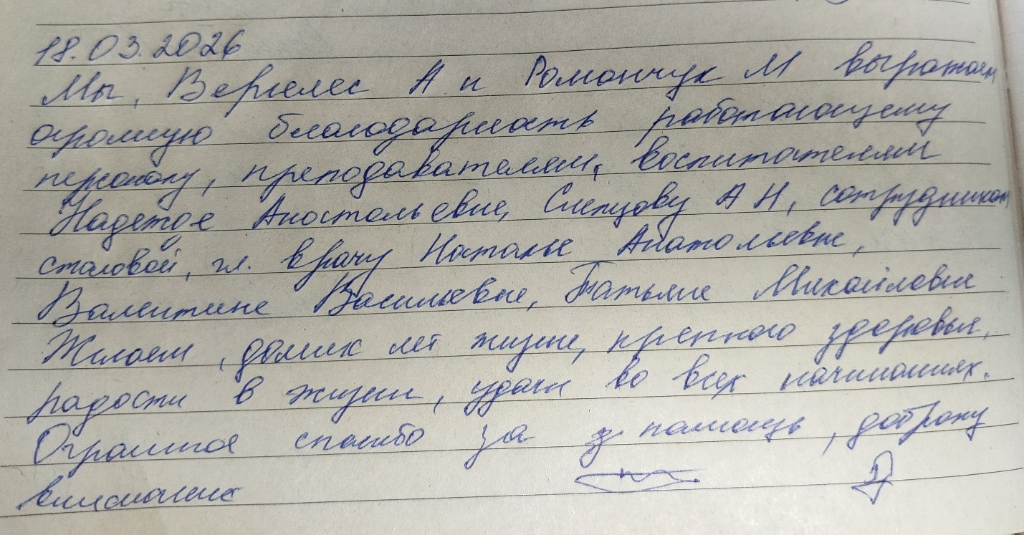 18.03.2026
Мы, Вергелес А. и Романчук М выражаем
огромную благодарность работающему
персоналу, преподавателям, воспитателям
Надежде Анатольевне, Слепцову А Н, сотрудникам
столовой, гл. врачу Наталье Анатольевне,
Валентине Васильевне, Татьяне Михайловне
Желаем, долгих лет жизни, крепкого здоровья,
радости в жизни, удачи во всех начинаниях.
Огромное спасибо за помощь, доброту
внимание